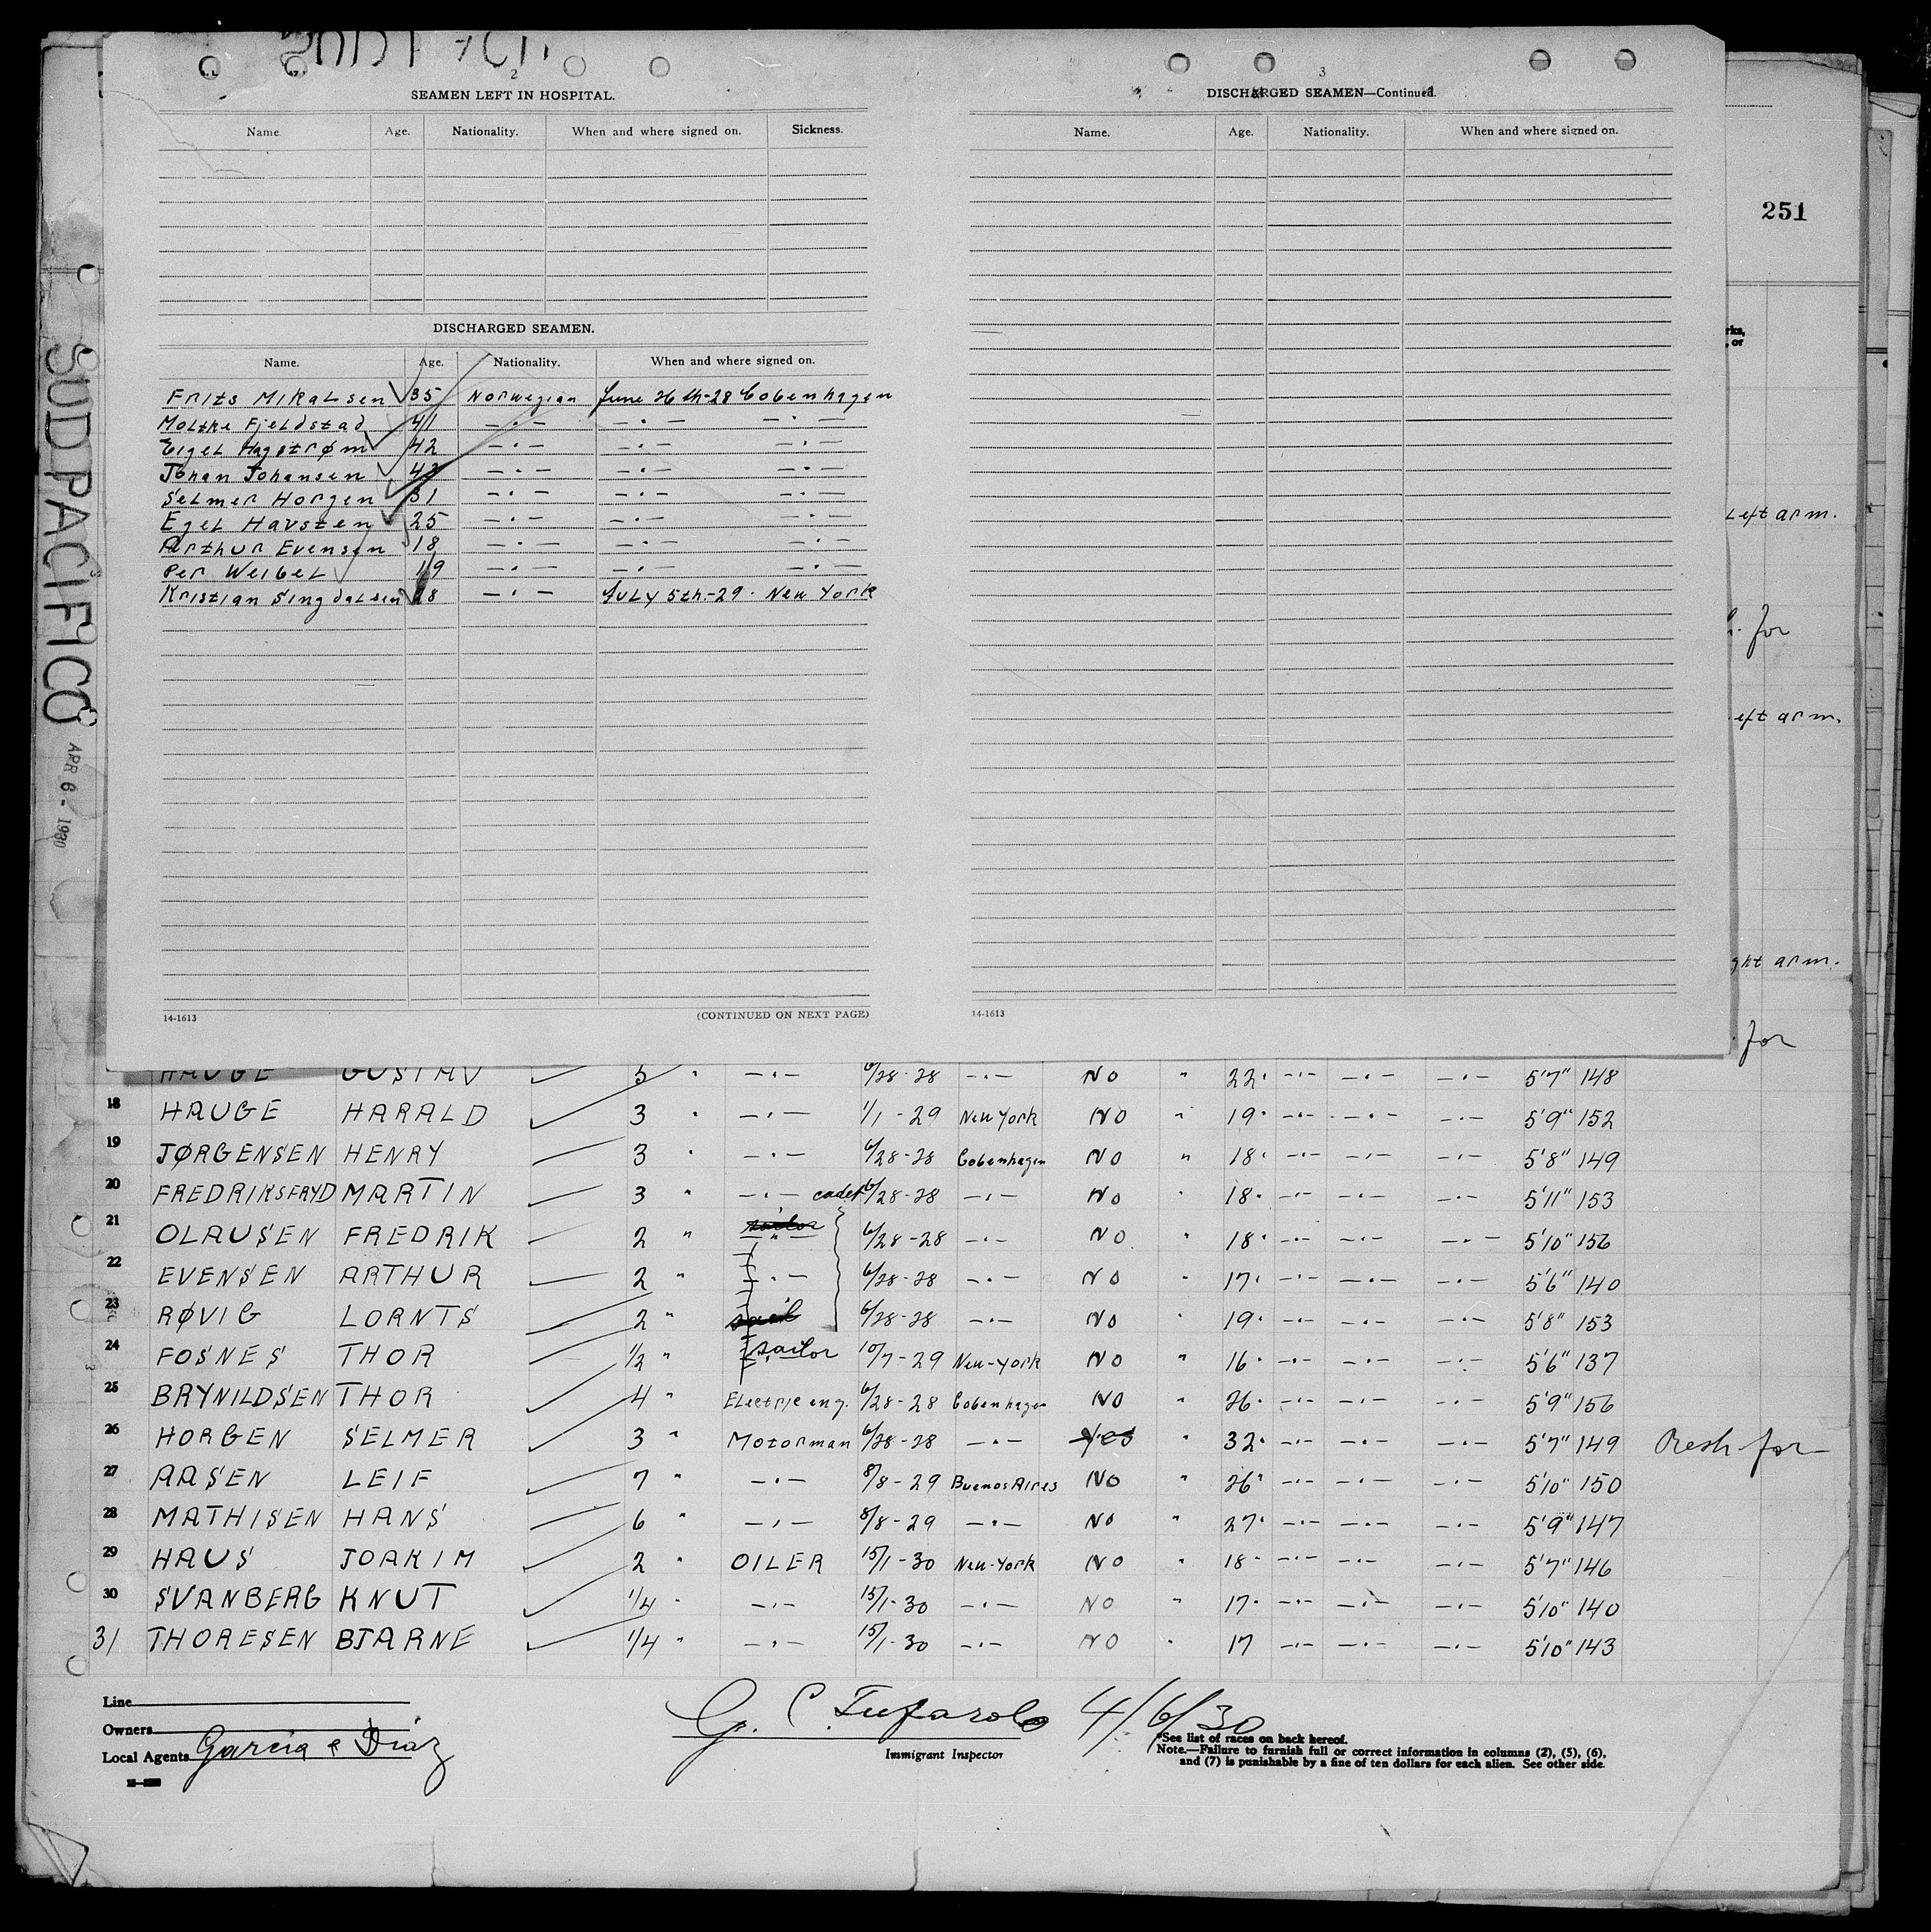 SUD PACIFICO
APR 6 - 1930
2
SEAMEN LEFT IN HOSPITAL.
Name Age. Nationality. When and where signed on. Sickness.
DISCHARGED SEAMEN.
Name. Age. Nationality. When and where signed on.
Frits Mikalsen 35 Norwegian June 26th-28 Cobenhagen
Molthe Fjeldstad 41 —·— —·— —·—
Eigel Hagstrøm 42 —·— —·— —·—
Johan Johansen 42 —·— —·— —·—
Selmer Horgen 31 —·— —·— —·—
Egel Havsten 25 —·— —·— —·—
Arthur Evensen 18 —·— —·— —·—
Per Weibel 19 —·— —·— —·—
Kristian Singdalsen 18 —·— July 5th.-29. New York
14-1613 (CONTINUED ON NEXT PAGE)
3
DISCHARGED SEAMEN—Continued.
Name. Age. Nationality. When and where signed on.
14-1613
251
rks,
, or
Left arm.
for
eft arm.
ght arm.
for
HAUGE GUSTAV 5 " —·— 6/28-28 —·— NO " 22. —·— —·— —·— 5'7" 148
18 HAUGE HARALD 3 " —·— 1/1-29 New York NO " 19. —·— —·— —·— 5'9" 152
19 JØRGENSEN HENRY 3 " —·— 6/28-28 Cobenhagen NO " 18. —·— —·— —·— 5'8" 149
20 FREDRIKSFRYD MARTIN 3 " —·— cadet 6/28-28 —·— NO " 18. —·— —·— —·— 5'11" 153
21 OLAUSEN FREDRIK 2 " sailor 6/28-28 —·— NO " 18. —·— —·— —·— 5'10" 156
22 EVENSEN ARTHUR 2 " —·— 6/28-28 —·— NO " 17. —·— —·— —·— 5'6" 140
23 RØVIG LORNTS 2 " 6/28-28 —·— NO " 19. —·— —·— —·— 5'8" 153
24 FOSNES THOR 1/2 " sailor 10/7-29 New-York NO " 16. —·— —·— —·— 5'6" 137
25 BRYNILDSEN THOR 4 " Electric eng. 6/28-28 Cobenhagen NO " 26. —·— —·— —·— 5'9" 156
26 HORGEN SELMER 3 " Motorman 6/28-28 —·— Yes " 32. —·— —·— —·— 5'7" 149 Resh for
27 AASEN LEIF 7 " —·— 8/8-29 Buenos Aires NO " 26. —·— —·— —·— 5'10" 150
28 MATHISEN HANS 6 " —·— 8/8-29 —·— NO " 27. —·— —·— —·— 5'9" 147
29 HAUS JOAKIM 2 " OILER 15/1-30 New-York NO " 18. —·— —·— —·— 5'7" 146
30 SVANBERG KNUT 1/4 " —·— 15/1-30 —·— NO " 17. —·— —·— —·— 5'10" 140
31 THORESEN BJARNE 1/4 " —·— 15/1-30 —·— NO " 17 —·— —·— —·— 5'10" 143
Line
Owners
Local Agents Garcia & Diaz
G. C. Tufarolo 4/6/30
Immigrant Inspector
*See list of races on back hereof.
Note.—Failure to furnish full or correct information in columns (2), (5), (6),
and (7) is punishable by a fine of ten dollars for each alien. See other side.